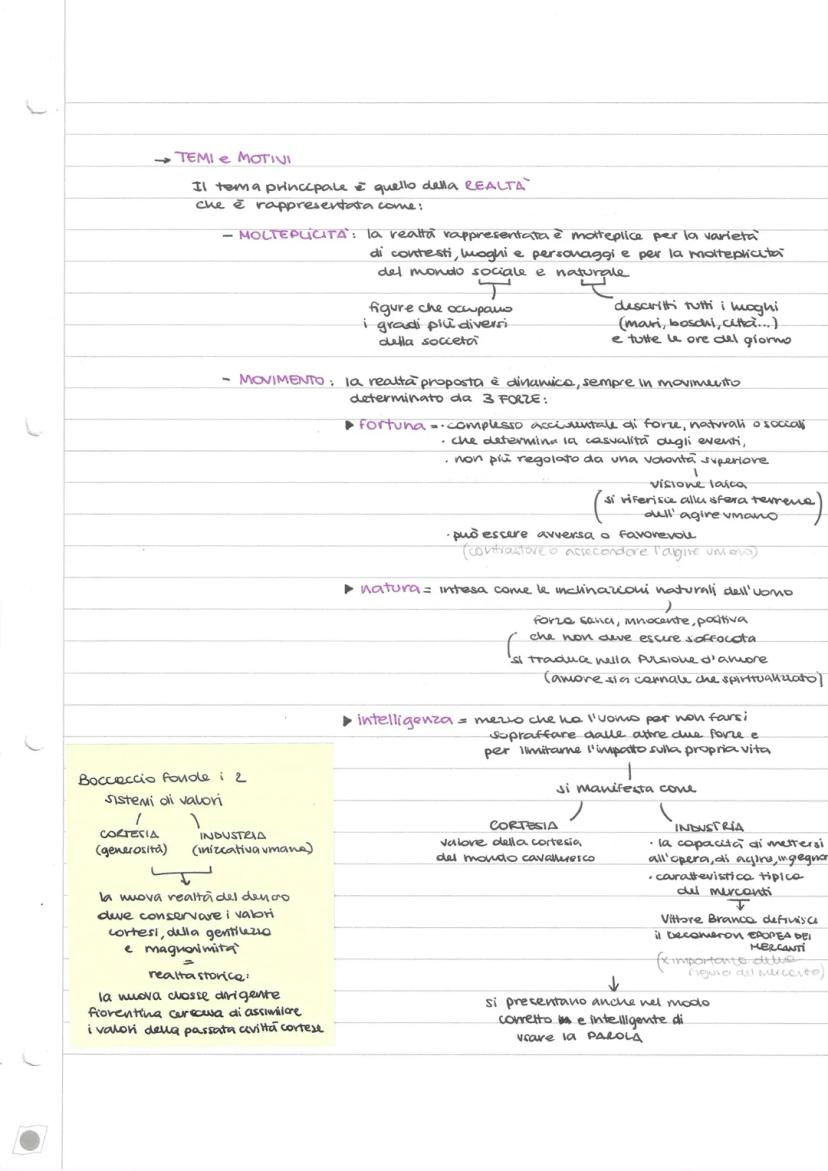 → TEMI e MOTIVI
Il tema principale è quello della REALTÀ
che è rappresentata come:
- MOLTEPLICITÀ: la realtà rappresentata è molteplice per la varietà
di contesti, luoghi e personaggi e per la molteplicità
del mondo sociale e naturale
figure che occupano
i gradi più diversi
della società
descritti tutti i luoghi
(mari, boschi, città...)
e tutte le ore del giorno
- MOVIMENTO: la realtà proposta è dinamica, sempre in movimento
determinato da 3 FORZE:
▶ fortuna = · complesso accidentale di forze, naturali o sociali
· che determina la casualità degli eventi,
· non più regolato da una volontà superiore
visione laica
(si riferisce alla sfera terrena
dell'agire umano)
· può essere avversa o favorevole
(contrastare o assecondare l'agire umano)
▶ natura = intesa come le inclinazioni naturali dell'uomo
forza sana, innocente, positiva
che non deve essere soffocata
si traduce nella pulsione d'amore
(amore sia carnale che spiritualizzato)
▶ intelligenza = mezzo che ha l'uomo per non farsi
sopraffare dalle altre due forze e
per limitarne l'impatto sulla propria vita
si manifesta come
CORTESIA
valore della cortesia
del mondo cavalleresco
INDUSTRIA
· la capacità di mettersi
all'opera, di agire, ingegnar
· caratteristica tipica
dei mercanti
Vittore Branca definisce
il Decameron EPOPEA DEI
MERCANTI
(x importanza della
figura del mercante)
si presentano anche nel modo
corretto e intelligente di
usare la PAROLA
Boccaccio fonde i 2
sistemi di valori
CORTESIA
(generosità)
INDUSTRIA
(iniziativa umana)
la nuova realtà del denaro
deve conservare i valori
cortesi, della gentilezza
e magnanimità
=
realtà storica:
la nuova classe dirigente
fiorentina cercava di assimilare
i valori della passata civiltà cortese